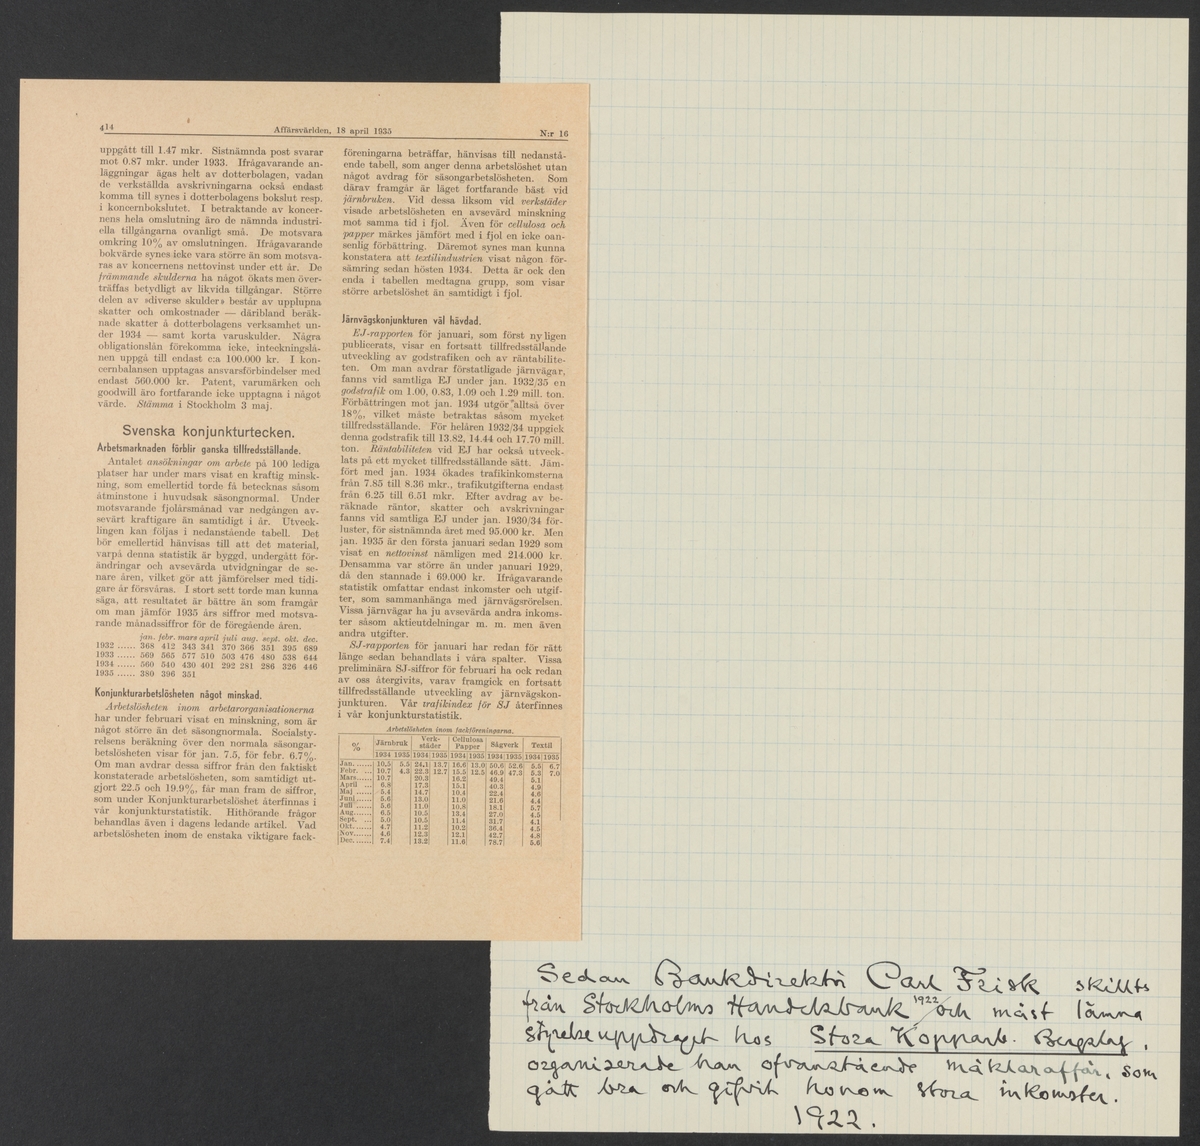 414
Affärsvärlden, 18 april 1935
N:r 16
uppgått till 1.47 mkr. Sistnämnda post svarar
mot 0.87 mkr. under 1933. Ifrågavarande an-
läggningar ägas helt av dotterbolagen, vadan
de verkställda avskrivningarna också endast
komma till synes i dotterbolagens bokslut resp.
i koncernbokslutet. I betraktande av koncer-
nens hela omslutning äro de nämnda industri-
ella tillgångarna ovanligt små. De motsvara
omkring 10% av omslutningen. Ifrågavarande
bokvärde synes icke vara större än som motsva-
ras av koncernens nettovinst under ett år. De
främmande skulderna ha något ökats men över-
träffas betydligt av likvida tillgångar. Större
delen av »diverse skulder» består av upplupna
skatter och omkostnader — däribland beräk-
nade skatter å dotterbolagens verksamhet un-
der 1934 — samt korta varuskulder. Några
obligationslån förekomma icke, inteckningslå-
nen uppgå till endast c:a 100.000 kr. I kon-
cernbalansen upptagas ansvarsförbindelser med
endast 560.000 kr. Patent, varumärken och
goodwill äro fortfarande icke upptagna i något
värde. Stämma i Stockholm 3 maj.
Svenska konjunkturtecken.
Arbetsmarknaden förblir ganska tillfredsställande.
Antalet ansökningar om arbete på 100 lediga
platser har under mars visat en kraftig minsk-
ning, som emellertid torde få betecknas såsom
åtminstone i huvudsak säsongnormal. Under
motsvarande fjolårsmånad var nedgången av-
sevärt kraftigare än samtidigt i år. Utveck-
lingen kan följas i nedanstående tabell. Det
bör emellertid hänvisas till att det material,
varpå denna statistik är byggd, undergått för-
ändringar och avsevärda utvidgningar de se-
nare åren, vilket gör att jämförelser med tidi-
gare år försvåras. I stort sett torde man kunna
säga, att resultatet är bättre än som framgår
om man jämför 1935 års siffror med motsva-
rande månadssiffror för de föregående åren.
jan. febr. mars april juli aug. sept. okt. dec.
1932 ...... 368 412 343 341 370 366 351 395 689
1933 ...... 569 565 577 510 503 476 480 538 644
1934 ...... 560 540 430 401 292 281 286 326 446
1935 ...... 380 396 351
Konjunkturarbetslösheten något minskad.
Arbetslösheten inom arbetarorganisationerna
har under februari visat en minskning, som är
något större än det säsongnormala. Socialsty-
relsens beräkning över den normala säsongar-
betslösheten visar för jan. 7.5, för febr. 6.7%.
Om man avdrar dessa siffror från den faktiskt
konstaterade arbetslösheten, som samtidigt ut-
gjort 22.5 och 19.9%, får man fram de siffror,
som under Konjunkturarbetslöshet återfinnas i
vår konjunkturstatistik. Hithörande frågor
behandlas även i dagens ledande artikel. Vad
arbetslösheten inom de enstaka viktigare fack-
föreningarna beträffar, hänvisas till nedanstå-
ende tabell, som anger denna arbetslöshet utan
något avdrag för säsongarbetslösheten. Som
därav framgår är läget fortfarande bäst vid
järnbruken. Vid dessa liksom vid verkstäder
visade arbetslösheten en avsevärd minskning
mot samma tid i fjol. Även för cellulosa och
papper märkes jämfört med i fjol en icke oan-
senlig förbättring. Däremot synes man kunna
konstatera att textilindustrien visat någon för-
sämring sedan hösten 1934. Detta är ock den
enda i tabellen medtagna grupp, som visar
större arbetslöshet än samtidigt i fjol.
Järnvägskonjunkturen väl hävdad.
EJ-rapporten för januari, som först nyligen
publicerats, visar en fortsatt tillfredsställande
utveckling av godstrafiken och av räntabilite-
ten. Om man avdrar förstatligade järnvägar,
fanns vid samtliga EJ under jan. 1932/35 en
godstrafik om 1.00, 0.83, 1.09 och 1.29 mill. ton.
Förbättringen mot jan. 1934 utgör alltså över
18%, vilket måste betraktas såsom mycket
tillfredsställande. För helåren 1932/34 uppgick
denna godstrafik till 13.82, 14.44 och 17.70 mill.
ton. Räntabiliteten vid EJ har också utveck-
lats på ett mycket tillfredsställande sätt. Jäm-
fört med jan. 1934 ökades trafikinkomsterna
från 7.85 till 8.36 mkr., trafikutgifterna endast
från 6.25 till 6.51 mkr. Efter avdrag av be-
räknade räntor, skatter och avskrivningar
fanns vid samtliga EJ under jan. 1930/34 för-
luster, för sistnämnda året med 95.000 kr. Men
jan. 1935 är den första januari sedan 1929 som
visat en nettovinst nämligen med 214.000 kr.
Densamma var större än under januari 1929,
då den stannade i 69.000 kr. Ifrågavarande
statistik omfattar endast inkomster och utgif-
ter, som sammanhänga med järnvägsrörelsen.
Vissa järnvägar ha ju avsevärda andra inkoms-
ter såsom aktieutdelningar m. m. men även
andra utgifter.
SJ-rapporten för januari har redan för rätt
länge sedan behandlats i våra spalter. Vissa
preliminära SJ-siffror för februari ha ock redan
av oss återgivits, varav framgick en fortsatt
tillfredsställande utveckling av järnvägskon-
junkturen. Vår trafikindex för SJ återfinnes
i vår konjunkturstatistik.
Arbetslösheten inom fackföreningarna.
% Järnbruk Verk-städer Cellulosa Papper Sågverk Textil
1934 1935 1934 1935 1934 1935 1934 1935 1934 1935
Jan. ...... 10.5 5.5 24.1 13.7 16.6 13.0 50.6 52.6 5.5 6.7
Febr. ... 10.7 4.3 22.3 12.7 15.5 12.5 46.9 47.3 5.3 7.0
Mars...... 10.7 20.3 16.2 49.4 5.1
April ... 6.8 17.3 15.1 40.3 4.9
Maj ...... 5.4 14.7 10.4 22.4 4.6
Juni ...... 5.6 13.0 11.0 21.6 4.4
Juli ...... 5.6 11.0 10.8 18.1 5.7
Aug....... 6.5 10.5 13.4 27.0 4.5
Sept. ... 5.0 10.5 11.4 31.7 4.1
Okt....... 4.7 11.2 10.2 36.4 4.5
Nov....... 4.6 12.3 12.1 42.7 4.8
Dec. ...... 7.4 13.2 11.6 78.7 5.6
Sedan Bankdirektör Carl Frisk skillts
från Stockholms Handelsbank 1922 och måst lämna
styrelseuppdraget hos Stora Kopparb. Bergslag,
organiserade han ofvanstående mäklaraffär, som
gått bra och gifvit honom stora inkomster.
1922.